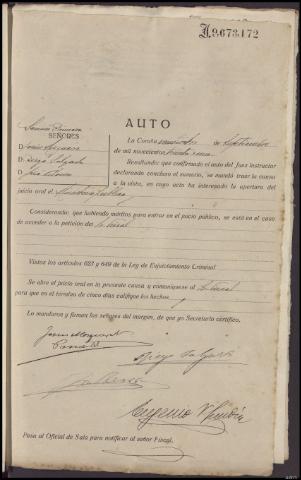 A9.673.172
AUTO
SEÑORES
D.
D. Diego Salgado
D.
La Coruña de Septiembre
de mil novecientos treinta
Resultando: que confirmado el auto del Juez instructor
declarando concluso el sumario, se mandó traer la causa
a la vista, en cuyo acto ha interesado la apertura del
juicio oral el
Considerando: que habiendo méritos para entrar en el juicio público, se está en el caso
de acceder a la petición del fiscal
Vistos los artículos 623 y 649 de la Ley de Enjuiciamiento Criminal
Se abre el juicio oral en la presente causa y comuníquese al fiscal
para que en el término de cinco días califique los hechos
Lo mandaron y firman los señores del margen, de que yo Secretario certifico.
Diego Salgado
Eugenio
Pasa al Oficial de Sala para notificar al señor Fiscal.